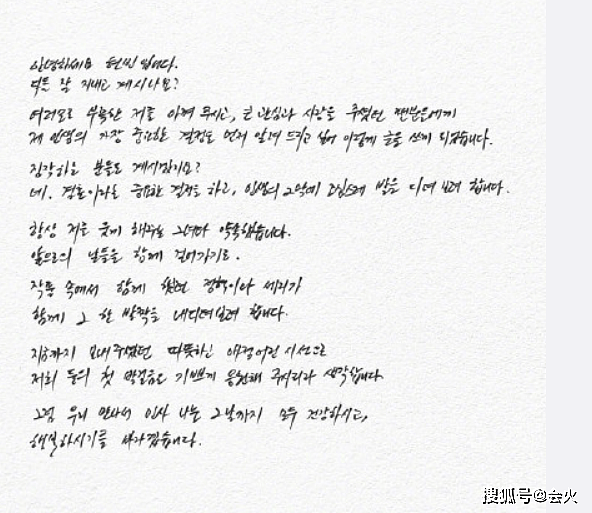 안녕하세요 현빈입니다.
다들 잘 지내고 계시나요?
여러모로 부족한 저를 아껴 주시고, 큰 관심과 사랑을 주셨던 팬분들에게
제 인생의 가장 중요한 결정을 먼저 알려 드리고 싶어 이렇게 글을 쓰게 되었습니다.
짐작하는 분들도 계시겠지요?
네. 결혼이라는 중요한 결정을 하고, 인생의 2막에 조심스레 발을 디뎌 보려 합니다.
항상 저를 웃게 해주는 그녀와 약속했습니다.
앞으로의 날들을 함께 걸어가기로.
작품 속에서 함께 했던 정혁이와 세리가
함께 그 한 발짝을 내디뎌보려 합니다.
지금까지 보내주셨던 따뜻하신 애정어린 시선으로
저희 둘의 첫 발걸음을 기쁘게 응원해 주시리라 생각합니다.
그럼 우리 만나서 인사 나눌 그날까지 모두 건강하시고,
행복하시기를 바라겠습니다.
搜狐号@会火